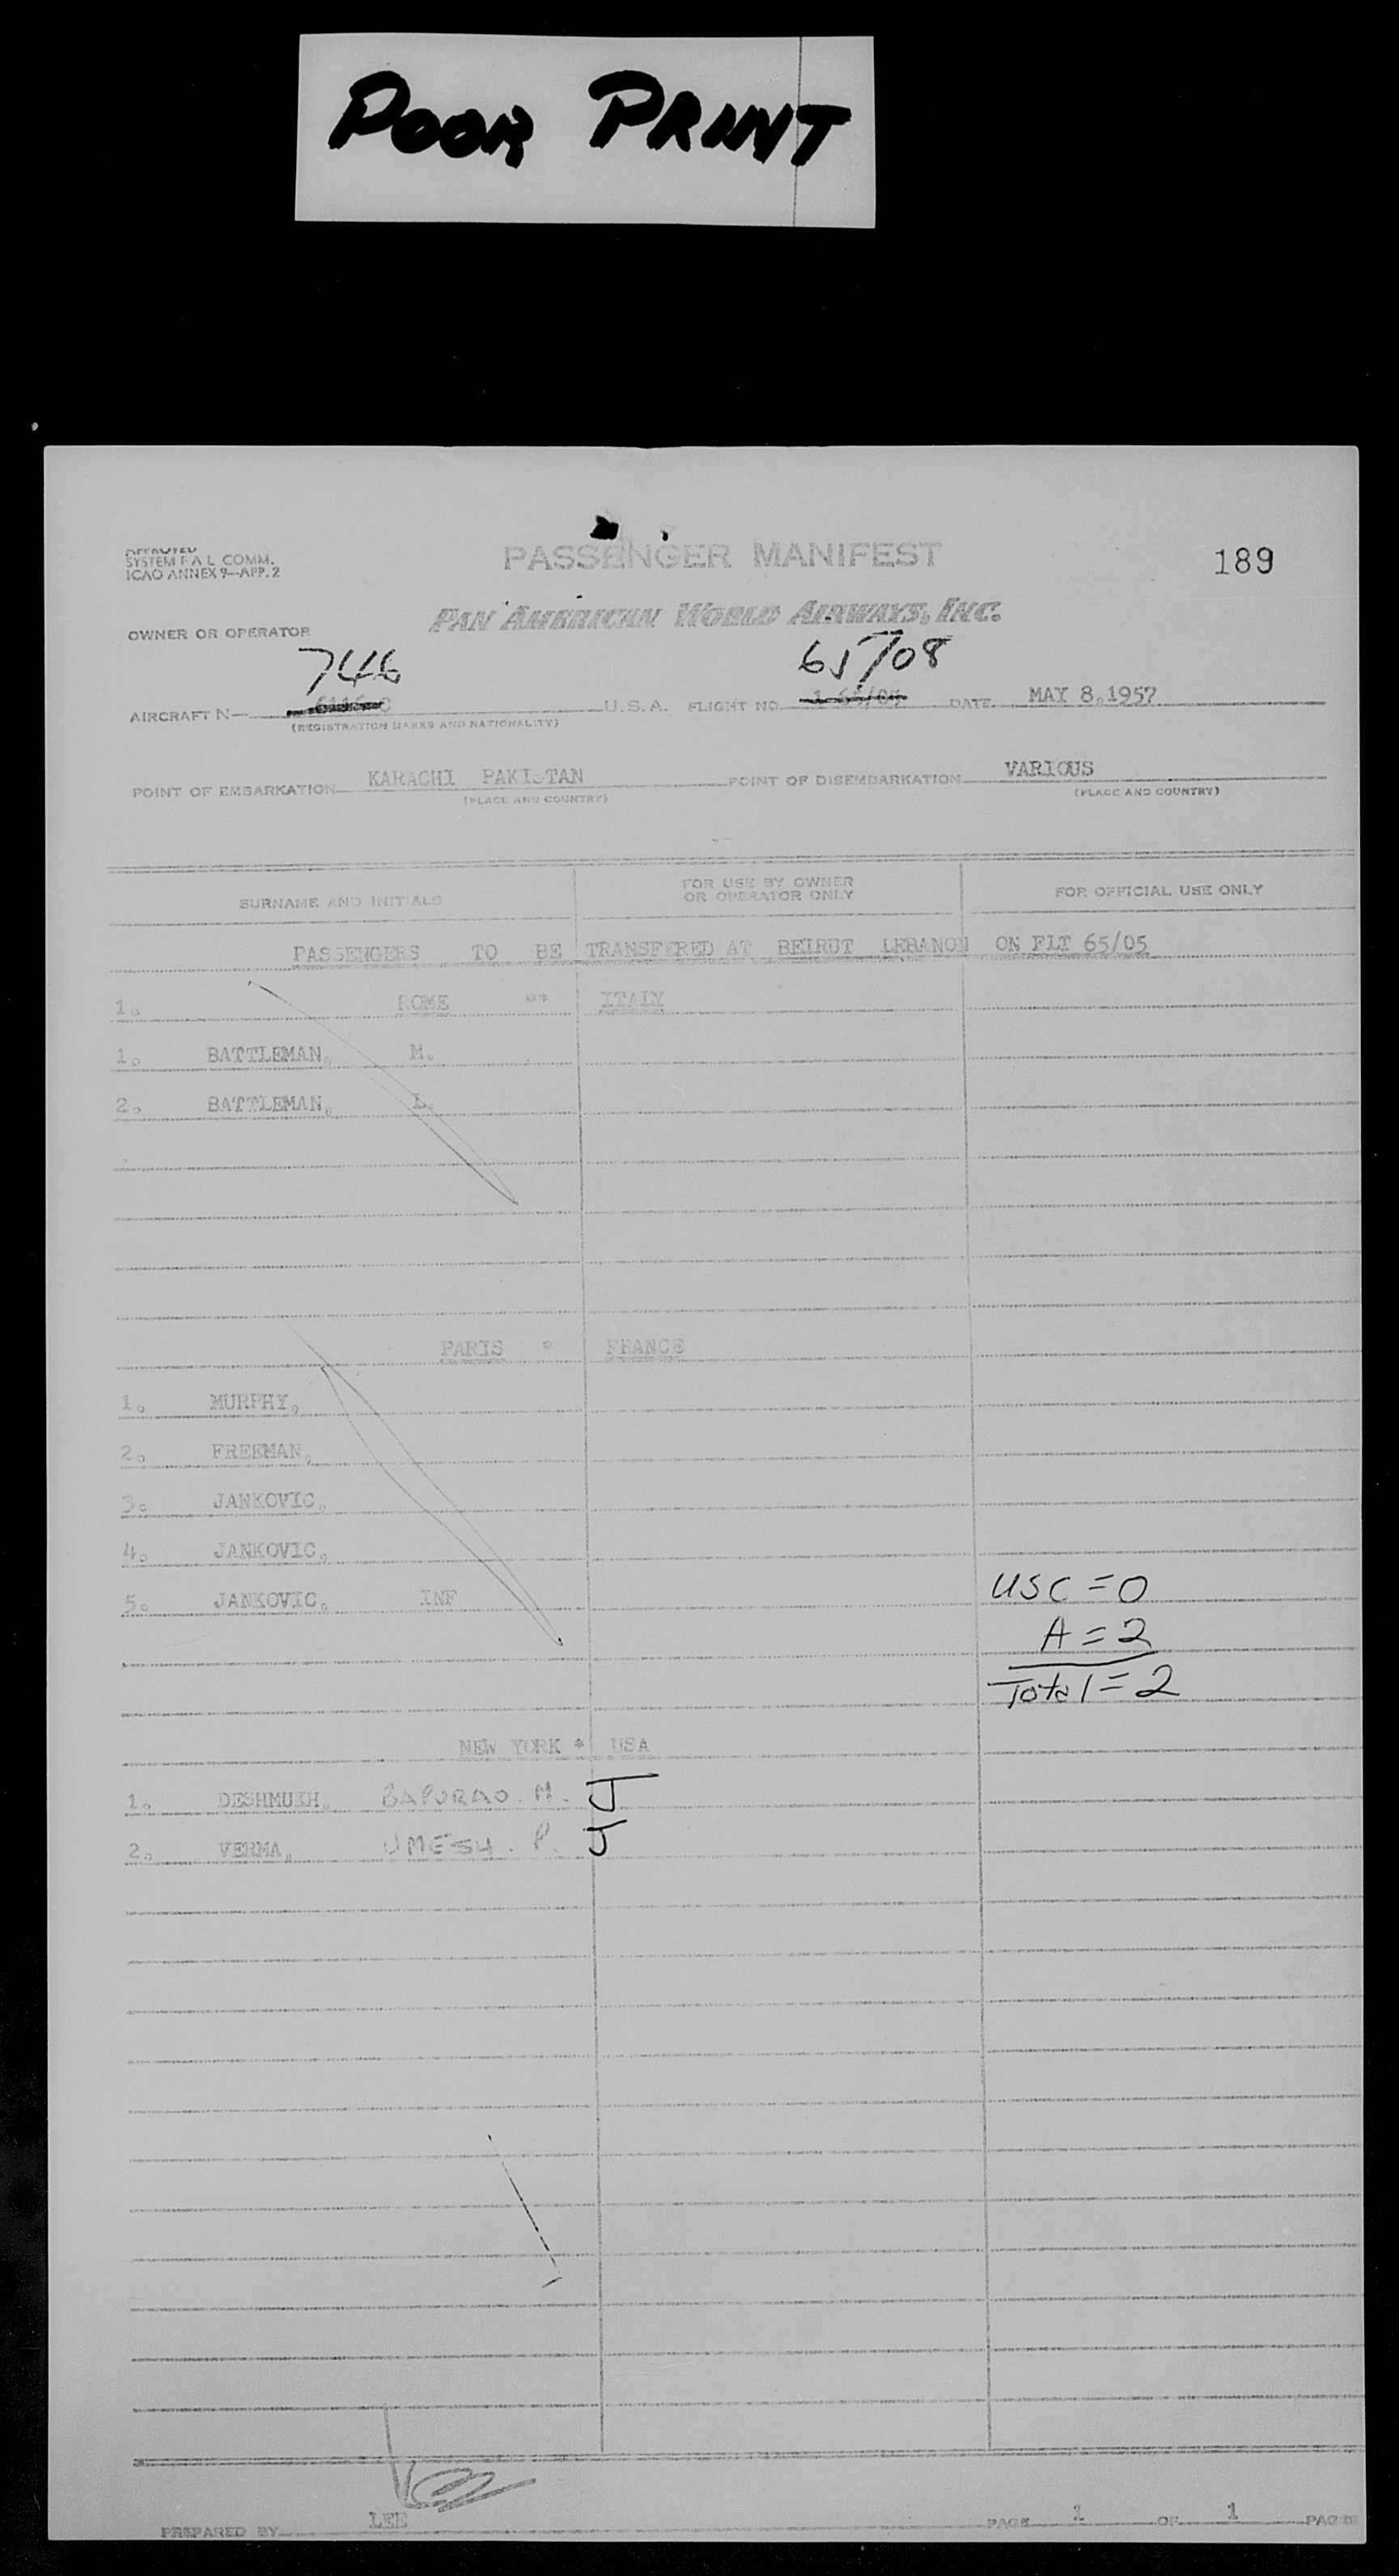 POOR PRINT
APPROVED
SYSTEM F A L COMM.
ICAO ANNEX 9—APP. 2
PASSENGER MANIFEST
189
OWNER OR OPERATOR
PAN AMERICAN WORLD AIRWAYS, INC.
746
65/08
AIRCRAFT N— U.S.A. FLIGHT NO. DATE MAY 8,1957
(REGISTRATION MARKS AND NATIONALITY)
POINT OF EMBARKATION KARACHI PAKISTAN POINT OF DISEMBARKATION VARIOUS
(PLACE AND COUNTRY) (PLACE AND COUNTRY)
SURNAME AND INITIALS
FOR USE BY OWNER
OR OPERATOR ONLY
FOR OFFICIAL USE ONLY
PASSENGERS TO BE TRANSFERED AT BEIRUT LEBANON ON FLT 65/05
1. ROME ITALY
1. BATTLEMAN, M.
2. BATTLEMAN, L.
PARIS * FRANCE
1. MURPHY,
2. FREEMAN,
3. JANKOVIC,
4. JANKOVIC,
5. JANKOVIC, INF
USC = 0
A = 2
Total = 2
NEW YORK * USA
1. DESHMUKH, BAPURAO. M.
2. VERMA, UMESH. P.
PREPARED BY LEE
PAGE 1 OF 1 PAGES